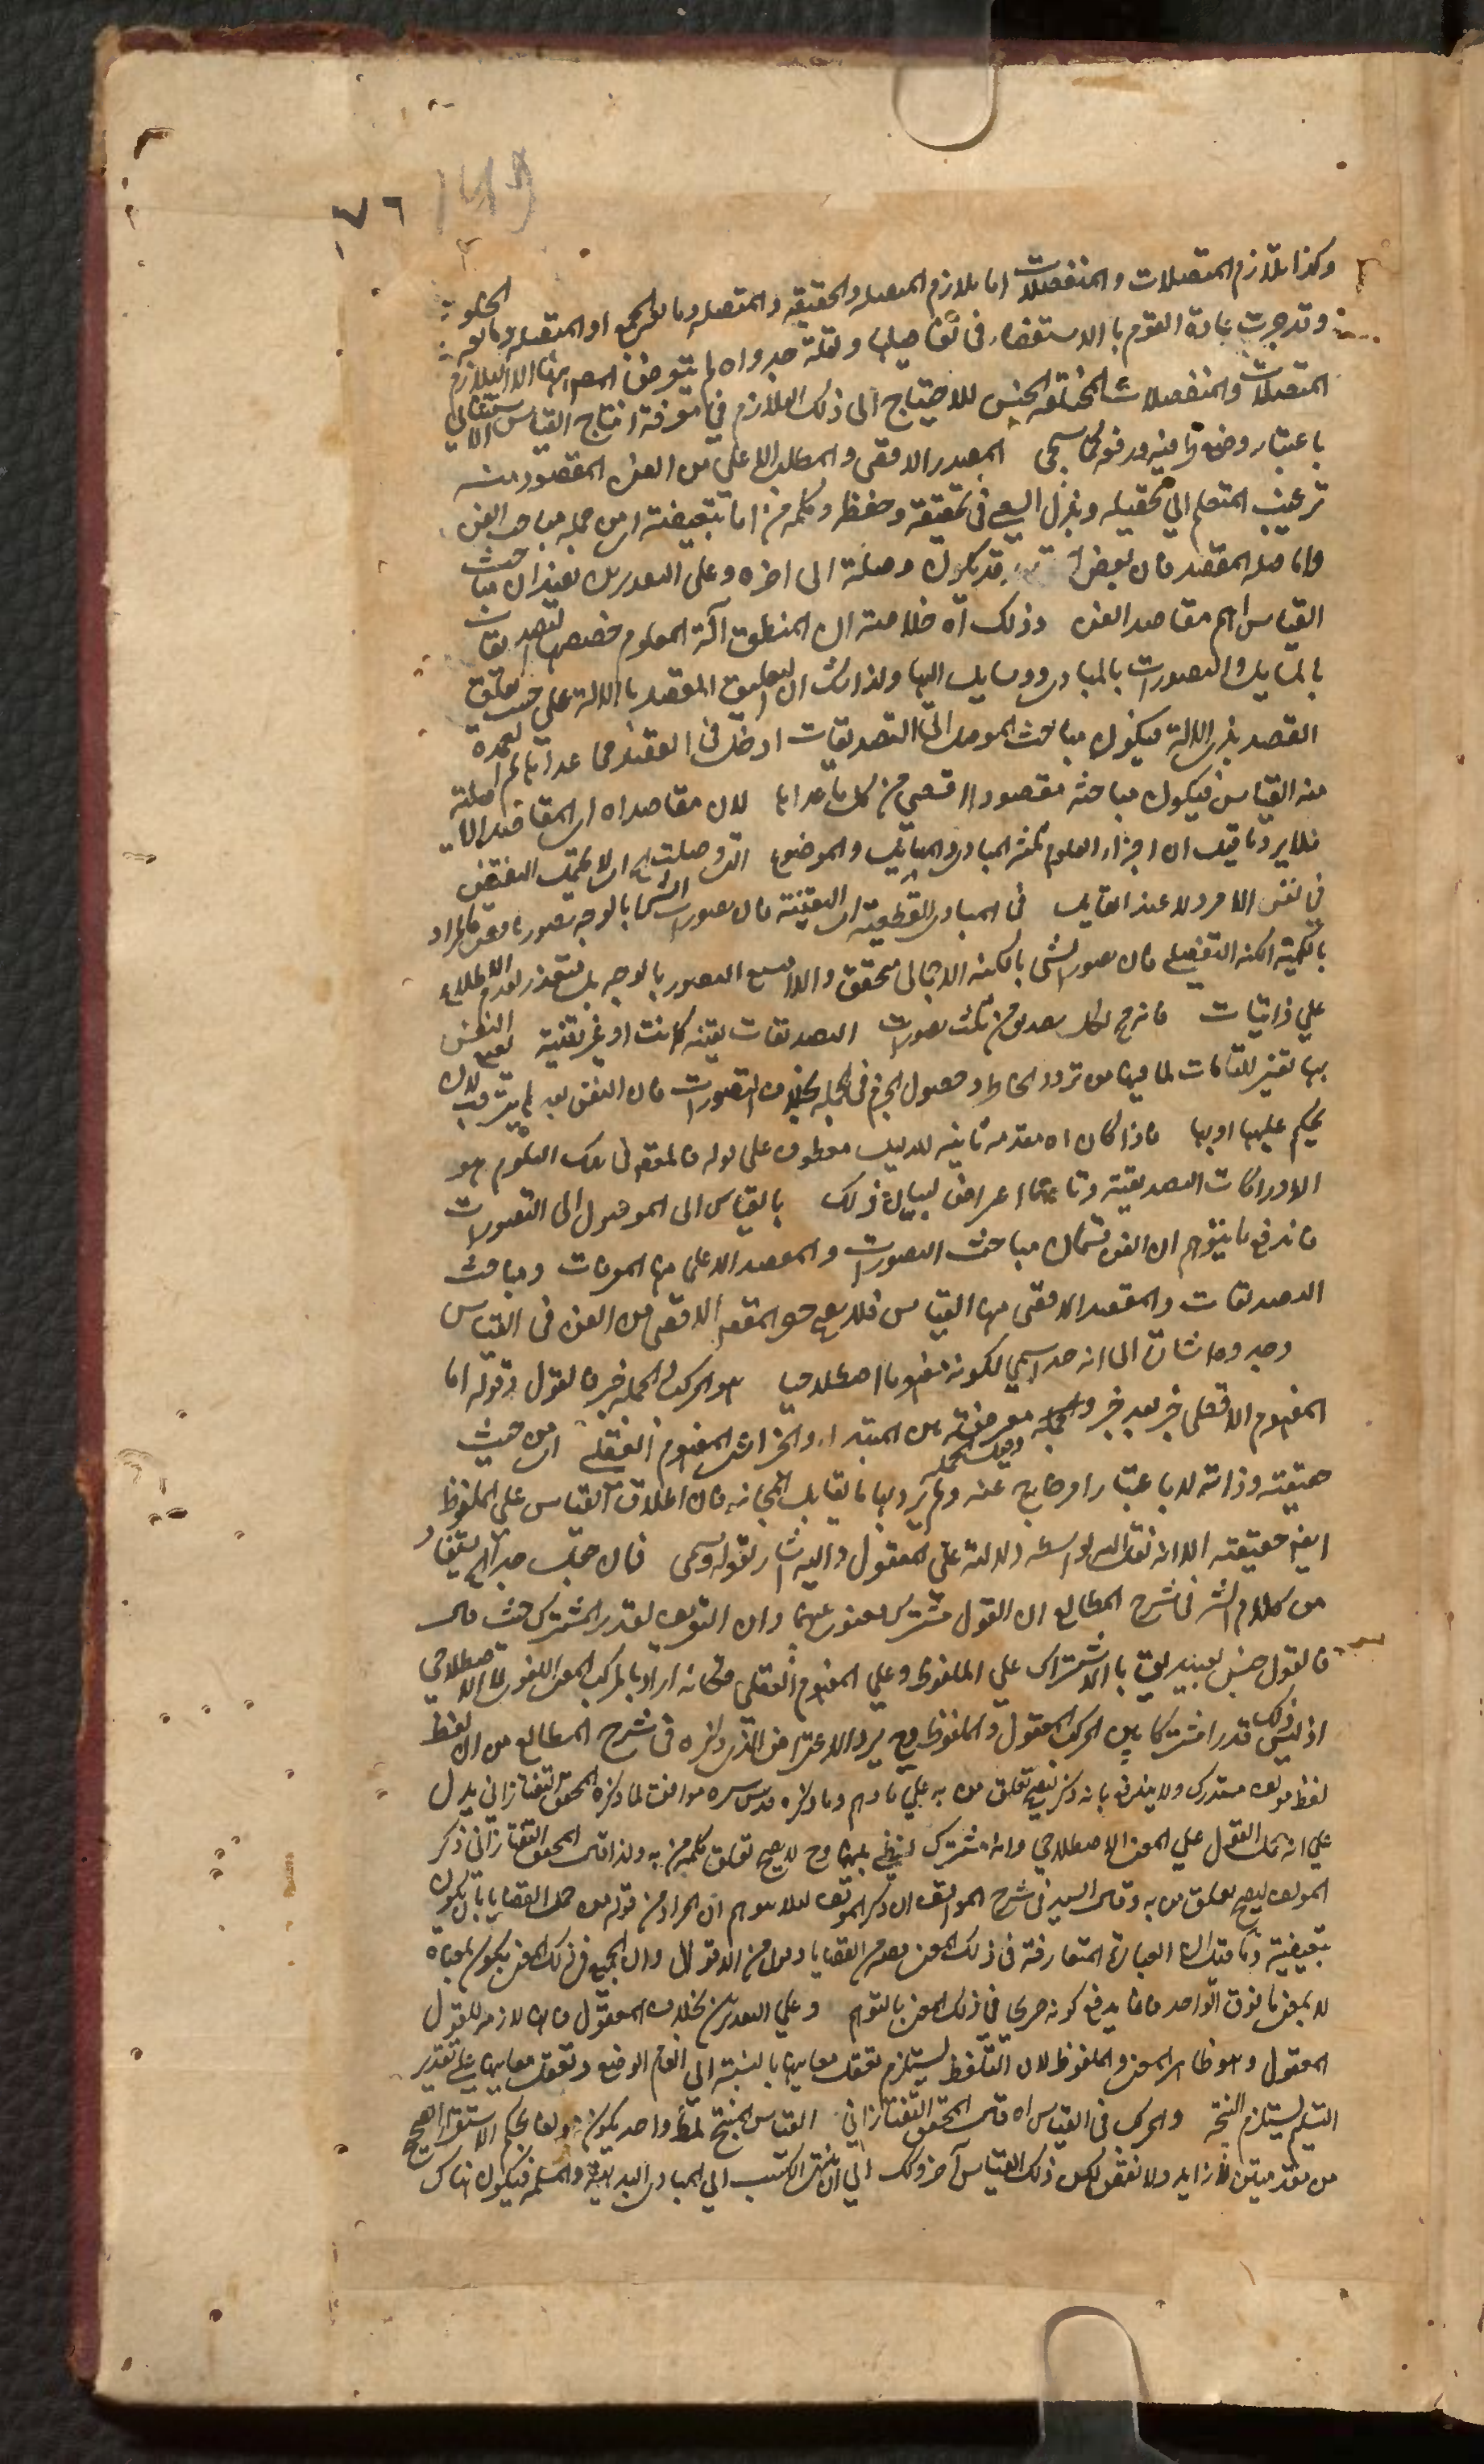 ٧٦ ١٤٩
وكذا تلازم المتصلات والمنفصلات اما تلازم المتصله والحقيقه والمتصله ومانعه الجمع او المتصله ومانعه الخلو
وقد جرت عادة القوم بالاستقصاء في تفاصيلها ولقلة جدواه لم يتعرض المصـ ههنا الا لتلازم
المتصلات والمنفصلات المختلفه الجنس للاحتياج الى ذلك التلازم في معرفة انتاج القياس الاستثنائي
باعتبار وضع ما فيه ورفعه كما سيجى المقصد الاقصى والمطلب الاعلى من الفن المقصود منه
ترغيب المتعلم الي تحصيله وبذل السعي في تحقيقه وحفظه وكلمة من اما تبعيضية اي من جملة مباحث الفن
واما صلة المقصد فان بعض قد يكون وصلة الى اخره وعلى التقديرين يفيد ان مباحث
القياس اهم مقاصد الفن وذلك اه خلاصته ان المنطق آلة العلوم خصص التصديقات
بالمسايل والتصورات بالمبادي ووسايل اليها ولذا كان تعلق القصد بالالة على حسب تعلق
القصد بذي الالة فيكون مباحث الموصل الى التصديقات ادخل في القصد مما عداها ثم العمدة
منه القياس فيكون مباحثه مقصودا اقصي من كل ما عداها لان مقاصد اه اي المقاصد الاصلية
فلا يرد ما قيل ان اجزاء العلوم ثلثة المبادي والمسايل والموضوع التي وصلت اي لا يحتمل النقيض
في نفس الامر ولا عند القايل في المبادي القطعية اي اليقينية فان تصورات الشي بالوجه تصور ناقص فالمراد
بالكنه الكنه التفصيلي فان تصور الشي بالكنه الاجمالي متحقق والا امتنع التصور بالوجه بل متعذر لعدم الاطلاع
علي ذاتيات فانه مع لكل تصديق من ثلث تصورات التصديقات يقينية كانت او غير يقينية النفس
بها تغير للتامات لما فيها من تردد الخاطر وحصول الجزم في الجملة بخلاف التصورات فان النفس بعد لم يترقب لان
يحكم عليها او بها فاذا كان اه مقدمة ثانية للدليل معطوف على قوله فالمقصد في تلك العلوم هو
الادراكات التصديقية وما بينهما اعراض لبيان ذلك بالقياس الى الموصول الى التصورات
فاندفع ما يتوهم ان الفن قسمان مباحث التصورات والمقصد الاعلى منها المعرفات ومباحث
التصديقات والمقصد الاقصى منها القياس فلا يصح جعل المقصد الاقصى من الفن في القياس
وحدوه اشارة الى انه حد اسمي لكونه مفهوما اصطلاحيا هو المركب والجملة خبر فالقول وقوله اما
المفهوم العقلي خبر بعد خبر والجملة معترضة بين المبتداء والخبر اي المفهوم العقلي اي من حيث
وقيل الجملة
حقيقته وذاته لا باعتبار امر خارج عنه ولم يرد بها ما يقابل المجاز فان اطلاق القياس على الملفوظ
ايضا حقيقته الا انه نقل اليه بواسطه دلالته على المعقول واليه اشار بقوله ويسمى فان قلت جدا لم يستفاد
من كلام الشـ في شرح المطالع ان القول مشترك معنوي بينهما وان التعريف للقدر المشترك حيث قال
فالقول جنس بعيد يقال بالاشتراك على الملفوظ وعلي المفهوم العقلي فكانه اراد بالمركب المعنى اللغوي لا الاصطلاحي
اذ ليس ذلك قدرا مشتركا بين المركب المعقول والملفوظ وح يرد الاعتراض الذي ذكره في شرح المطالع من ان لفظ
لفظ مولف مستدرك ولا يندفع بانه ذكر ليصح تعلق من به علي ما وهم وما ذكره قدس سره موافقا لما ذكره المحقق التفتازاني يدل
علي انه حمل القول علي المعنى الاصطلاحي وانه مشترك لفظي بينهما وح لا يصح تعلق كلمة من به ولذا قال المحقق التفتازاني ذكر
المولف ليصح تعلق من به وقال السيد في شرح المواقف ان ذكر المولف لئلا يتوهم ان المراد من قوله من جملة القضايا بان يكون
تبعيضية وما قيل ان العبارة المتعارفة في ذلك المعنى قضية من القضايا وقول من الاقوال وان الجمع في ذلك المعنى يكون لمعناه
لا بمعنى ما فوق الواحد فانما يدفع كونه صريحا في ذلك المعنى بالتوهم وعلي التقديرين بخلاف المعقول فانه لازم للقول
المعقول وهو ظاهر المعنى والملفوظ لان التلفظ ليستلزم تعقل معانيها بالنسبة الي العالم بالوضع وتعقل معانيها على تقدير
التسليم يستلزم النتيجة والمركب في القياس اه قال المحقق التفتازاني القياس المنتج لمطـ واحد يكون مولفا بحكم الاستقراء الصحيح
من مقدمتين لا ازيد ولا انقص لكن ذلك القياس آخر وكذلك الي ان ينتهي الكسب الي المبادي البديهية والمسلمة فيكون هناك